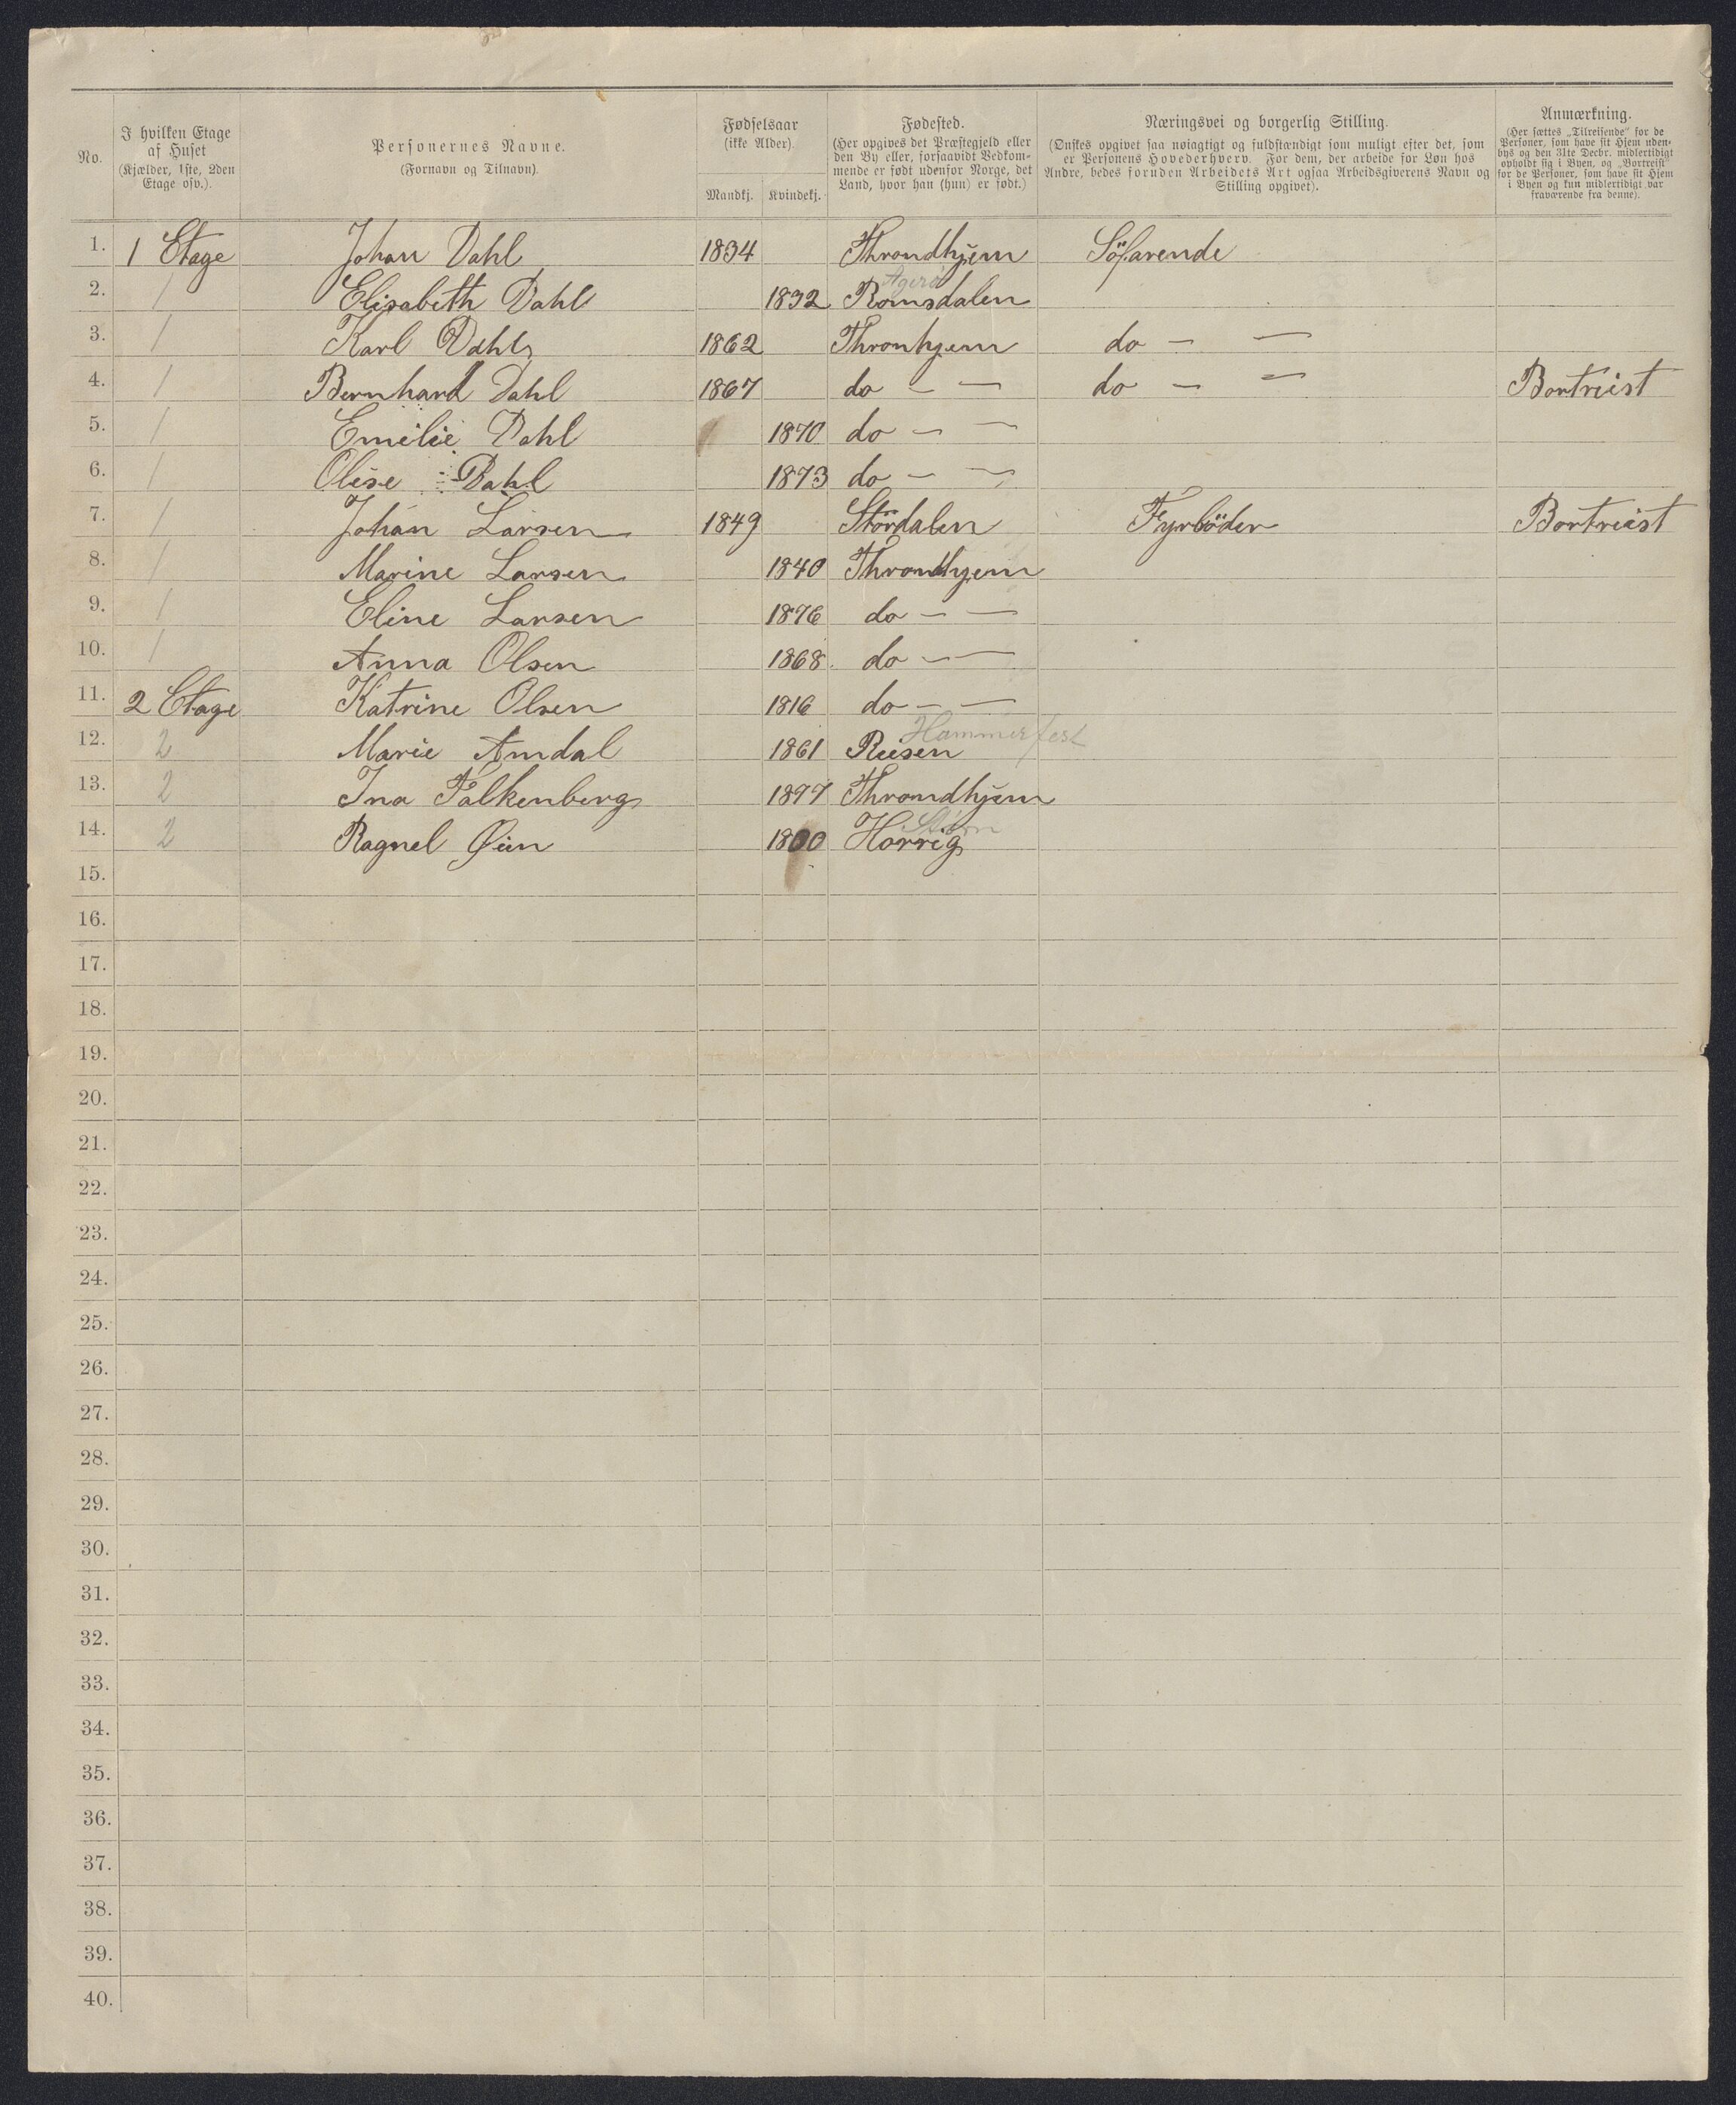 No.
I hvilken Etage af Huset
(Kjælder, 1ste, 2den Etage osv.).
Personernes Navne.
(Fornavn og Tilnavn).
Fødselsaar
(ikke Alder).
Mandkj. Kvindekj.
Fødested.
(Her opgives det Præstegjeld eller den By eller, forsaavidt Vedkommende er født udenfor Norge, det Land, hvor han (hun) er født.)
Næringsvei og borgerlig Stilling.
(Ønskes opgivet saa nøiagtigt og fuldstændigt som muligt efter det, som er Personens Hovederhverv. For dem, der arbeide for Løn hos Andre, bedes foruden Arbeidets Art ogsaa Arbeidsgiverens Navn og Stilling opgivet).
Anmærkning.
(Her sættes „Tilreisende" for de Personer, som have sit Hjem udenbys og den 31te Decbr. midlertidigt opholdt sig i Byen, og „Bortreist" for de Personer, som have sit Hjem i Byen og kun midlertidigt var fraværende fra denne).
1. 1 Etage Johan Dahl 1834 Throndhjem Söfarende
2. 1 Elisabeth Dahl 1832 Agerö Romsdalen
3. 1 Karl Dahl 1862 Thronhjem do — —
4. 1 Bernhard Dahl 1867 do — — do — — Bortreist
5. 1 Emilie Dahl 1870 do — —
6. 1 Olise Dahl 1873 do — —
7. 1 Johan Larsen 1849 Stördalen Fyrböder Bortreist
8. 1 Marine Larsen 1840 Throndhjem
9. 1 Eline Larsen 1876 do — —
10. 1 Anna Olsen 1868 do — —
11. 2 Etage Katrine Olsen 1816 do — —
12. 2 Marie Amdal 1861 Reisen Hammerfest
13. 2 Ina Falkenberg Throndhjem
14. 2 Ragnel Øien Horrig
15.
16.
17.
18.
19.
20.
21.
22.
23.
24.
25.
26.
27.
28.
29.
30.
31.
32.
33.
34.
35.
36.
37.
38.
39.
40.